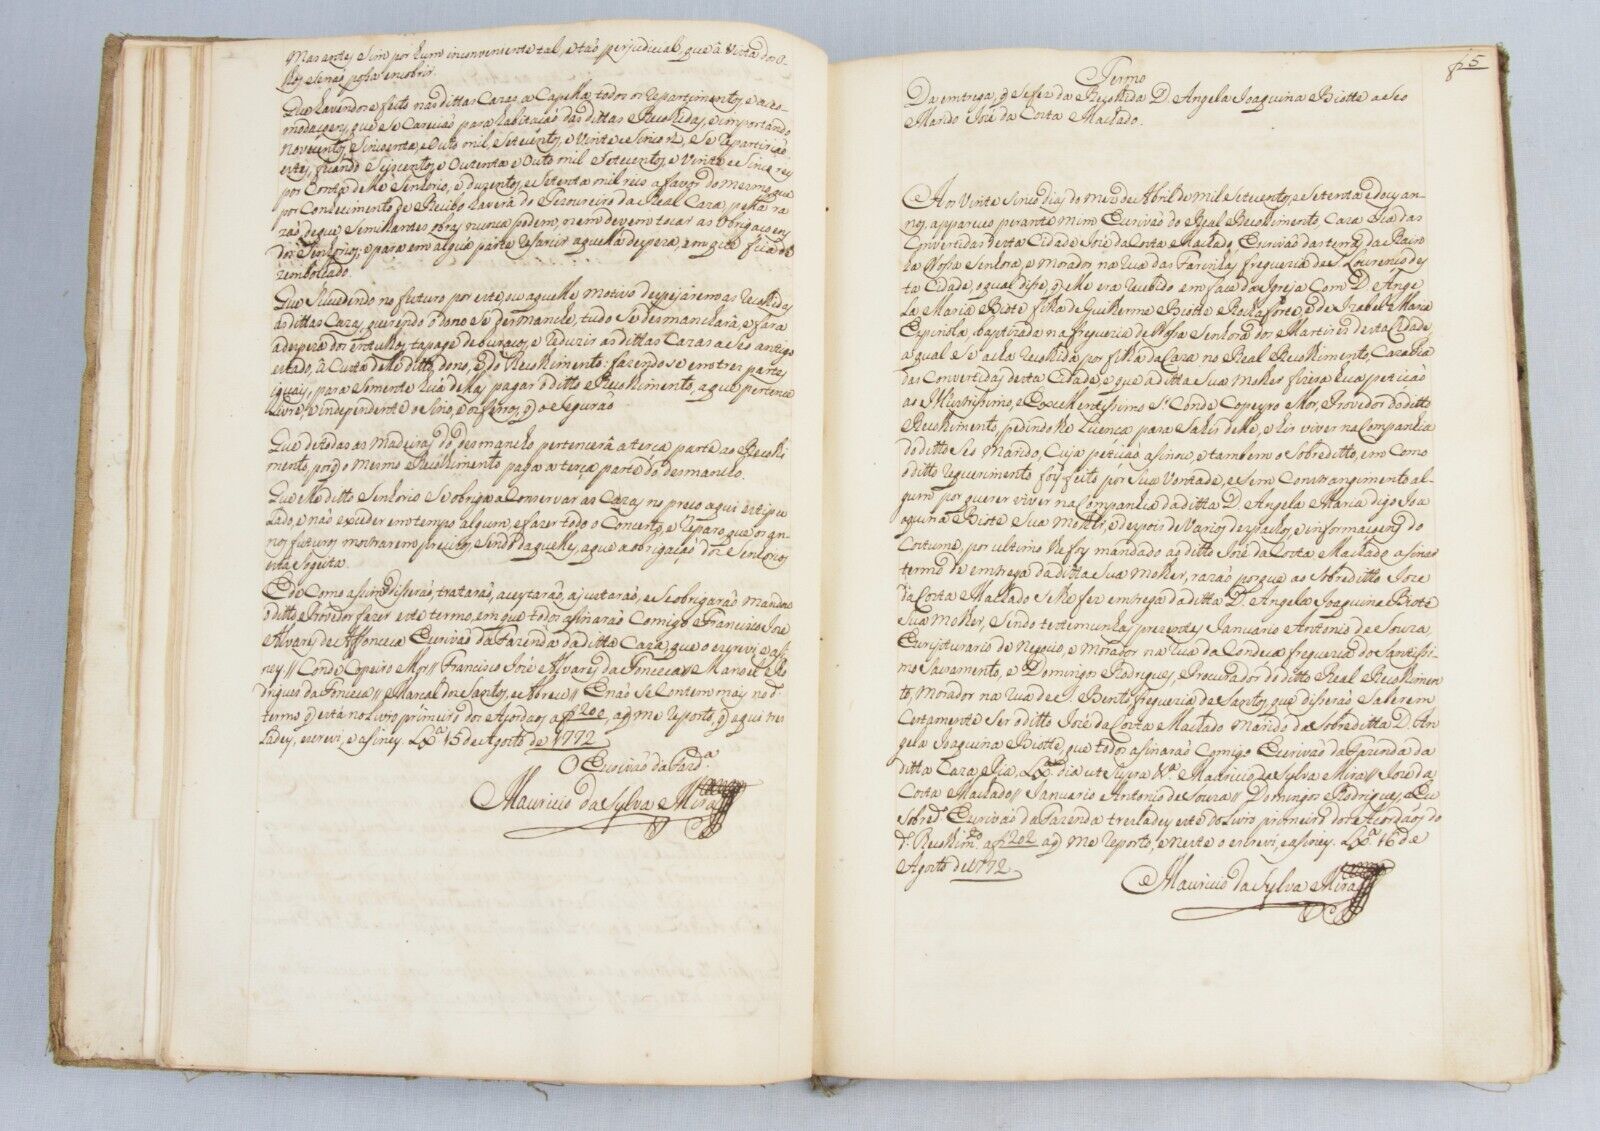 Mas antes sim por hum inconveniente tal, e taõ perjudicial, que à vista dos o-
lhos se naõ possa encobrir.
Que havendose feito nas dittas Cazas, e Capella, todos os repartimentos, e aco-
modaçoens, que se careciaõ para habitaçaõ das dittas Recolhidas, e importando
Novecentos, Sincoenta, e Outo mil, Setecentos, e Vinte, e Sinco r.s, se repartiraõ
estes, ficando Seiscentos, e Outenta e Outo mil Setecentos, e Vinte, e Sinco reis
por Conta delle Senhorio, e duzentos, e Setenta mil reis a favor do mesmo, que
por Conhecimento de Recibo haverá do Tezoureiro da Real Caza, pella ra-
zaõ de que Semilhantes obras nunca podem, nem devem tocar as Obrigaçoens
dos Senhorios; e para em algua parte resarcir aquella despeza, em que fica de
reembolçado.
Que Sucedendo no futuro por este, ou aquelle motivo despejarem as Recolhidas
as dittas Cazas, querendo o dono se desmanche, tudo se desmanchará, e fará
a despeza dos entulhos, tapage de buracos, e reduzir as dittas Cazas a seo antigo
estado, à Custa delle ditto dono, e do Recolhimento: fazendo se em tres partes
iguais, para Somente hua dellas pagar o ditto Recolhimento, a que pertence
livre, e independente o Sino, e os ferros, q o Seguraõ
Que de todas as Madeiras do desmancho pertencerá a terça parte ao Recolhi-
mento, porq o mesmo Recolhimento paga a terça parte do desmancho.
Que elle ditto Senhorio Se obriga a Conservar as Cazas no preço aqui estipu
lado, e naõ exceder em tempo algum, e fazer todo o Concerto, e reparo, que os an-
nos futuros mostrarem preciso, Sendo daquelles, a que a obrigaçaõ dos Senhorios
está Sogeita.
E de Como assim o disseraõ, trataraõ, aceytaraõ, ajustaraõ, e se obrigaraõ mandou
o ditto Provedor fazer este termo, em que todos assinaraõ Comigo Francisco Joze
Alvares de Affonceca Escrivaõ da Fazenda da ditta Caza, que o escrevi e assi
ney // Conde Copeiro Mor // Francisco Joze Alvares da Fonceca // Manoel Ro
drigues da Fonceca // Marcal dos Santos, e Abreu // E naõ Se Contem mais no d.
termo q está no Livro primeiro dos Acordaos a f 200, a q me reporto, q aqui tres
ladey, escrevi, e assiney. Lx.a 15 de Agosto de 1772
O Escrivaõ da Fazd.a
Mauricio da Sylva e Mira
f 5
Termo
Da entrega, q Se fez da Recolhida D. Angela Joaquina Biotte a Seo
Marido Joze da Costa Machado.
Aos Vinte Sinco dias do Mes de Abril de Mil Setecentos, e Setenta e dous an-
nos, appareceo perante mim Escrivaõ do Real Recolhimento, Caza Pia das
Convertidas desta Cidade Joze da Costa Machado, Escrivaõ das terras da Rain
ha Nossa Senhora, e Morador, na rua das Farinhas freguezia de S. Lourenço des
ta Cidade, o qual disse, q elle era recebido em face da Igreja Com D. Ange
la Maria Biote filha de Guilherme Biotte Rochaforte, e de Izabel Maria
Espinola, baptizada na freguezia de Nossa Senhora dos Martires desta Cidade
a qual se acha Recolhida por filha da Caza no Real Recolhimento, Caza Pia
das Convertidas desta Cidade, e que a ditta Sua Molher fizera hua petiçaõ
ao Illustrissimo, e Excellentissimo Sr. Conde Copeyro Mor, Provedor do ditto
Recolhimento, pedindolhe Licença para Sahir delle, e hir viver na Companhia
do ditto Seo Marido, Cuja petiçaõ assinou, e tambem o Sobreditto, em Como
o ditto requerimento foy feito por Sua Vontade, e Sem Constrangimento al-
gum por querer viver na Companhia da ditta D. Angela Maria digo Joa
quina Biote Sua Molher, e depois de varios despachos, e informaçoens do
Costume, por ultimo lhe foy mandado ao ditto Joze da Costa Machado assinar
termo de entrega da ditta Sua Molher, razaõ porque ao Sobreditto Joze
da Costa Machado Se lhe fez entrega da ditta D. Angela Joaquina Biote
Sua Molher, Sendo testemunhas prezentes Januario Antonio de Souza,
Escripturario de Negocio, e Morador na rua da Condeça freguezia do Santissi-
mo Sacramento, e Domingos Rodrigues, Procurador do ditto Real Recolhimen
to, Morador na Rua de S. Bento freguezia de Santos, que disseraõ Saberem
Certamente Ser o ditto Joze da Costa Machado Marido da Sobreditta D. An
gela Joaquina Biotte, que todos assinaraõ Comigo Escrivaõ da Fazenda da
ditta Caza Pia, Lx.a dia ut Supra V.a Mauricio da Sylva Mira // Joze da
Costa Machado // Januario Antonio de Souza // Domingos Rodrigues, e Eu
Sobred.o Escrivaõ da Fazenda tresladey este do Livro primeiro dos Acordaõs do
d.o Recolhim.to a f 202 a q me reporto, e neste o escrevi, e assiney. Lx.a 16 de
Agosto de 1772
Mauricio da Sylva e Mira